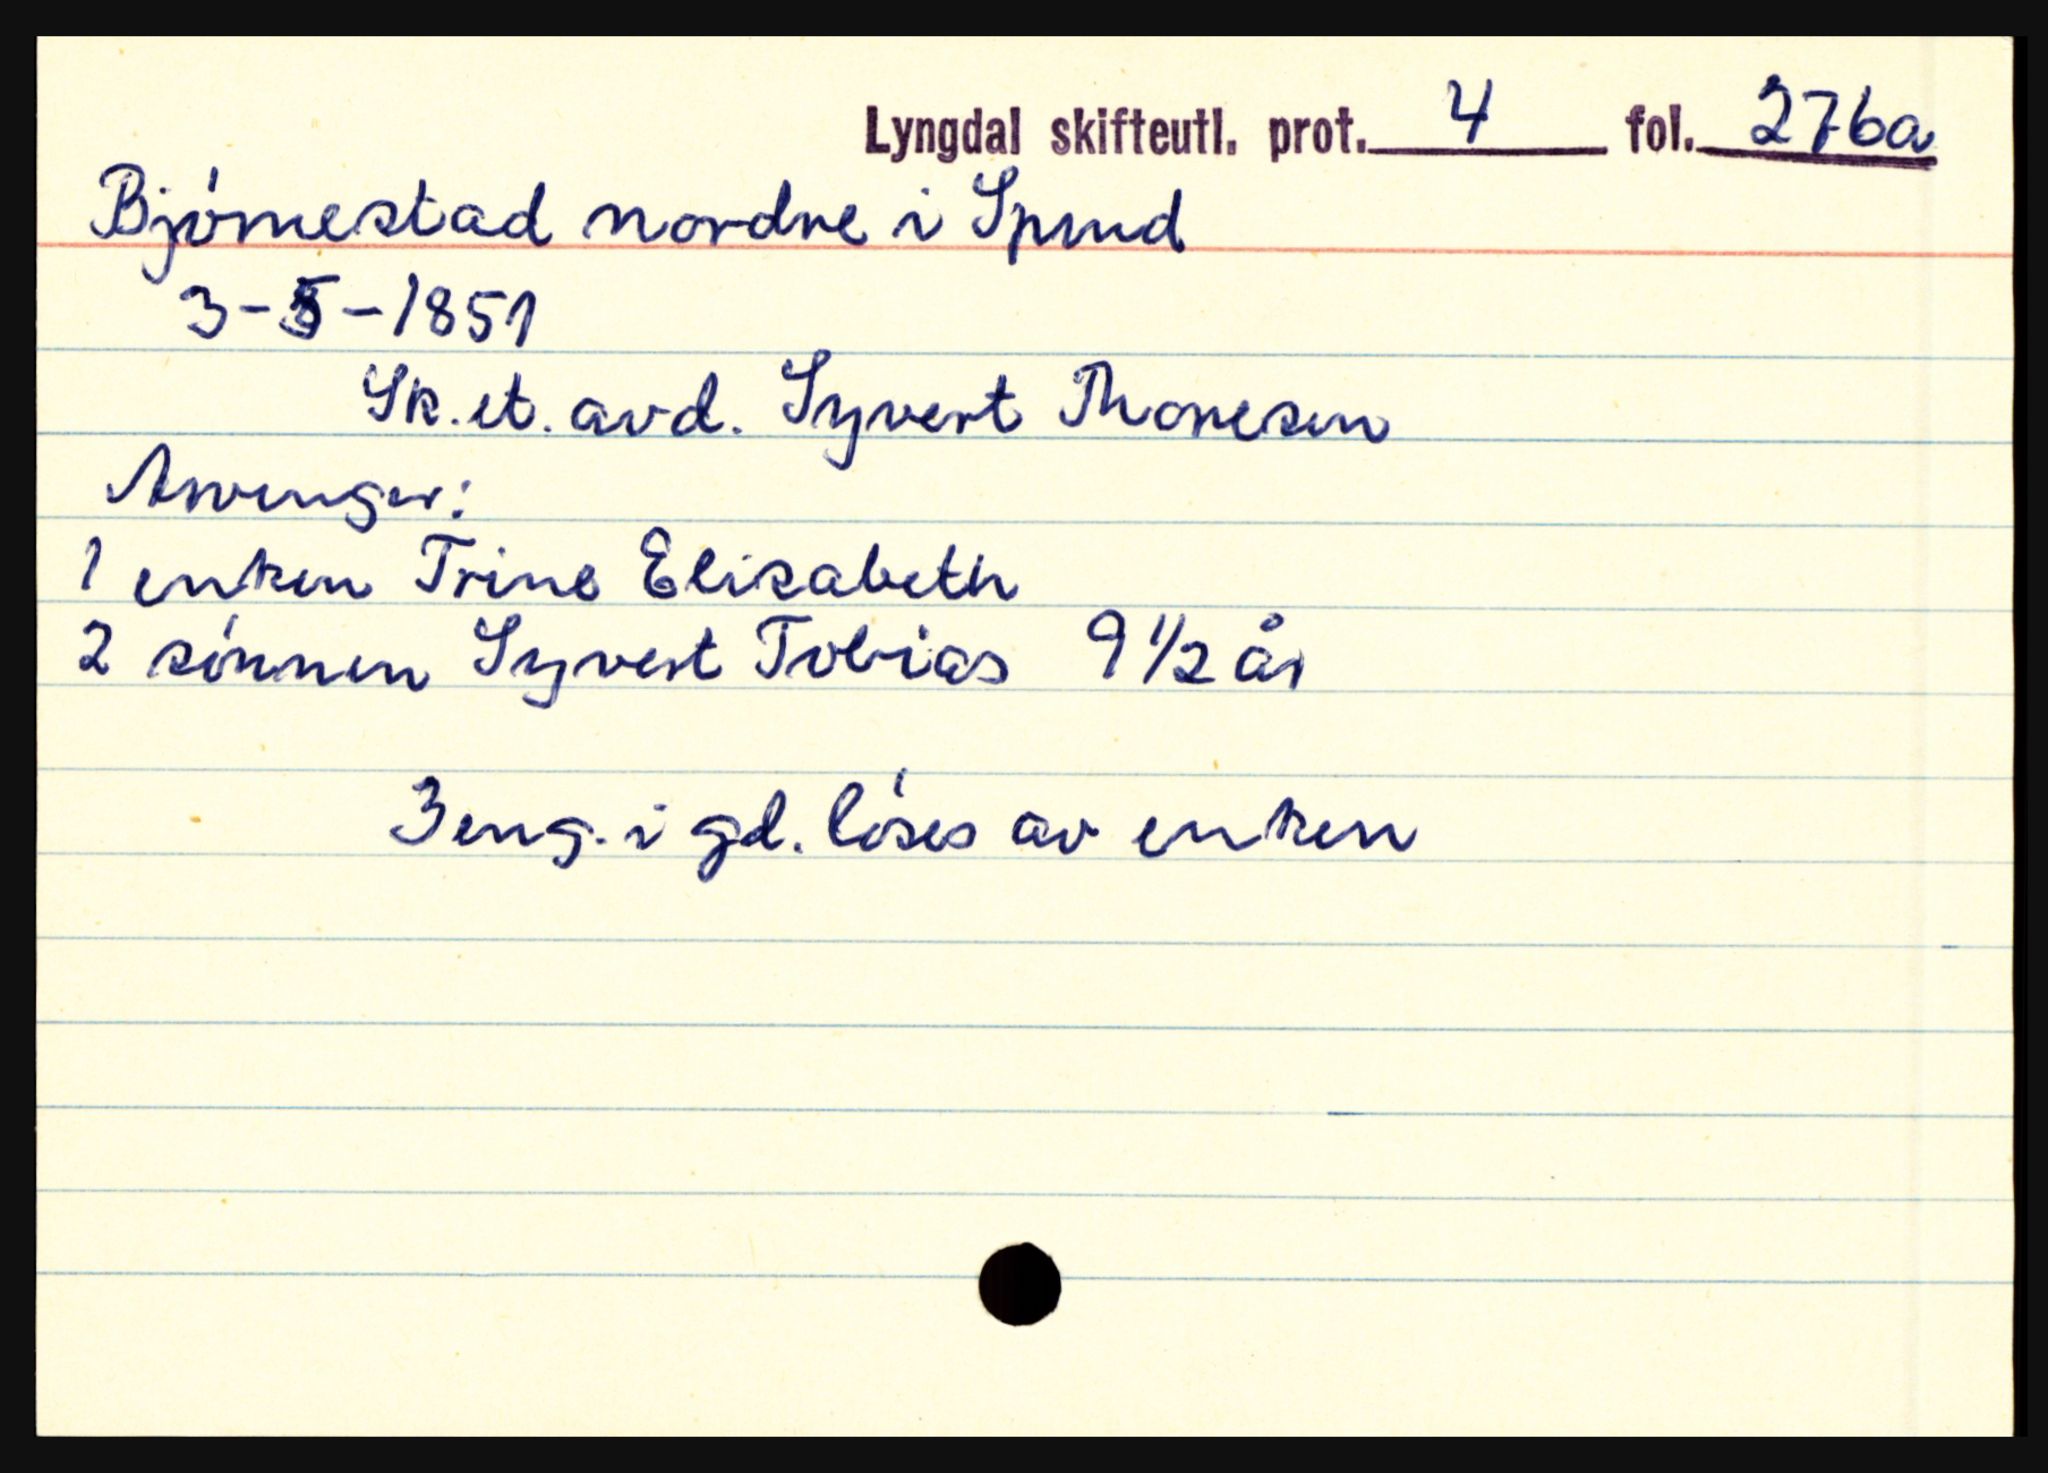 Lyngdal skifteutl. prot. 4 fol. 276a
Bjørnestad nordre i Spind
3-5-1851
Sk. et. avd. Syvert Thoresen
Arvinger:
1 enken Trine Elisabeth
2 sønnen Syvert Tobias 9 1/2 år
3 eng. i gd. løses av enken